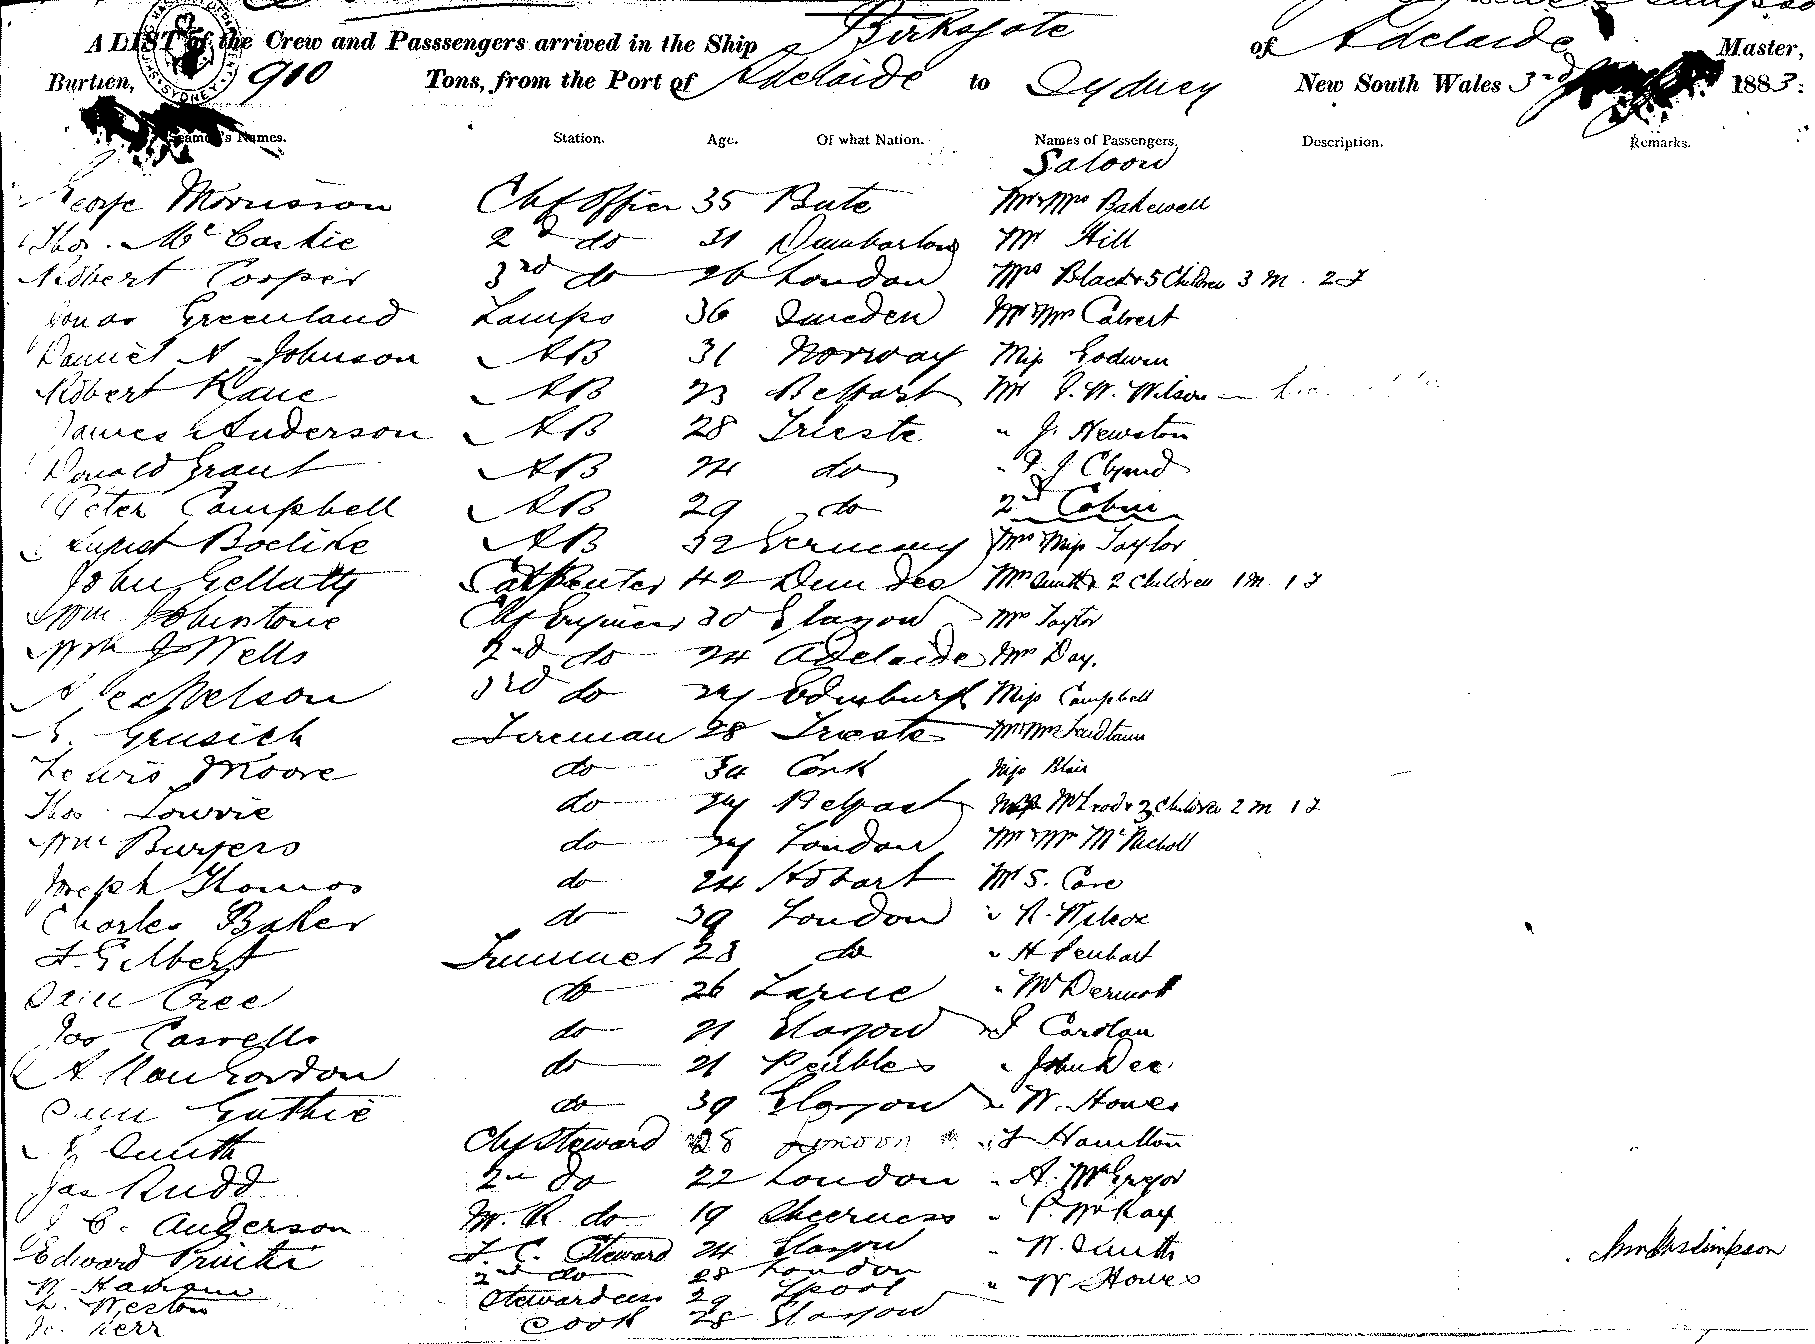 A LIST of the Crew and Passsengers arrived in the Ship Birksgate of Adelaide Master,
Burthen, 910 Tons, from the Port of Adelaide to Sydney New South Wales 3rd 1883
Seamen's Names. Station. Age. Of what Nation. Names of Passengers. Description. Remarks.
Saloon
George Morrisson Chf Officer 35 Bute Mr & Mrs Bakewell
Thos. McCarkie 2nd do 31 Dumbarton Mr Hill
Robert Cooper 3rd do 26 London Mrs Black & 5 Children 3 M. 2 F
Jonas Greenland Lamps 36 Sweden Mr Mrs Calvert
Daniel A Johnson AB 31 Norway Miss Godwin
Robert Kane AB 23 Belfast Mr P. W. Wilson
James Anderson AB 28 Trieste " J. Newston
Donald Grant AB 24 do
Peter Campbell AB 29 do 2nd Cabin
August Boelike AB 32 Germany Mrs Miss Taylor
John Gellatly Carpenter 42 Dundee Mrs Smith & 2 children 1 M. 1 F
Wm Johnstone Chf Engineer 30 Glasgow Mrs Taylor
Wm J Wells 2nd do 24 Adelaide Mrs Day.
Alec Nelson 3rd do 24 Edinburgh Miss Campbell
G. Grusich Fireman 28 Trieste Mr Mrs
Lewis Moore do 34 Cork Miss Blair
Thos Lowrie do 24 Belfast McLeod & 3 children 2 M 1 F
Wm Burgess do 24 London Mr & Mrs McNicholl
Joseph Thomas do 24 Hobart Mr S. Cove
Charles Baker do 39 London " R. Wilcox
F. Gilbert Trimmer 23 do " H Penhart
Sam Cree do 26 Larne " McDermott
Jas Caswells do 21 Glasgow " J Carolan
Allan Gordon do 21 Peebles " John Dee
Sam Guthrie do 39 Glasgow " W. Howes
E Smith Chf Steward 28 London " F Hamilton
Jas Rudd 2nd do 22 London " A. McGregor
J C. Anderson M. R do 19 Sheerness " P. McKay
Edward Printer F. C. Steward 24 Glasgow " W. Smith
W. 2nd do 28 London " W Howes
L. Weston Stewardess 29 Lpool
Jas. Kerr Cook 28 Glasgow